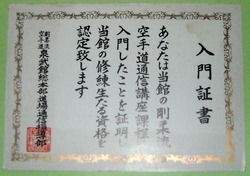 入門証書
あなたは当館の剛柔流
空手道通信講座課程に
入門したことを証明し
当館の修練生たる資格を
認定致します
泉武館総本部道場通信指導部